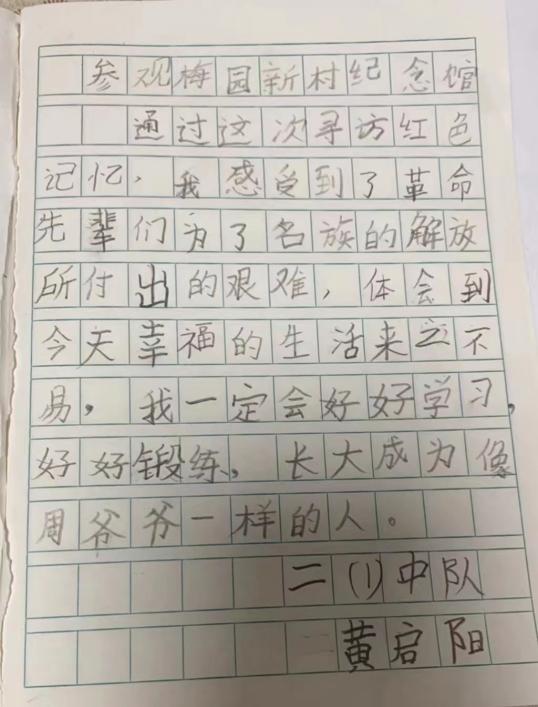 参观梅园新村纪念馆
通过这次寻访红色
记忆，我感受到了革命
先辈们为了名族的解放
所付出的艰难，体会到
今天幸福的生活来之不
易，我一定会好好学习，
好好锻练，长大成为像
周爷爷一样的人。
二(1)中队
黄启阳